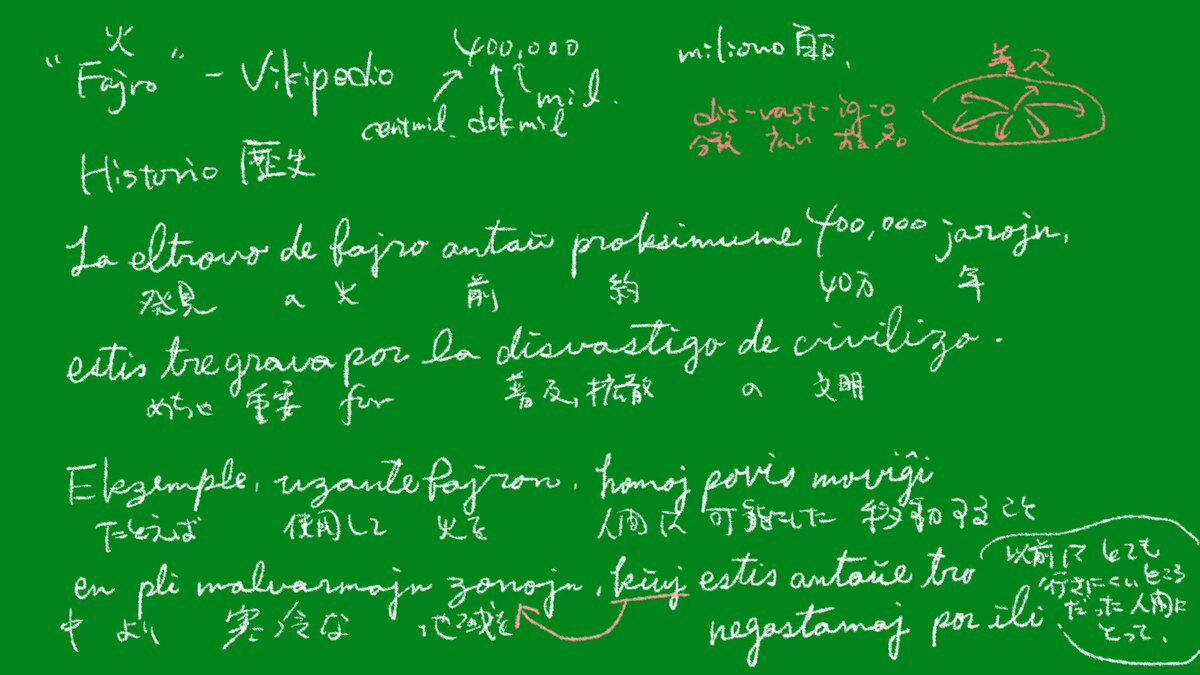 火
"Fajro" - Vikipedio
400,000
centmil dekmil mil.
miliono 百万.
普及
dis-vast-ig-o
分散 広い すること。
Historio 歴史
La eltrovo de fajro antaŭ proksimume 400,000 jarojn,
発見 の 火 前 約 40万 年
estis tre grava por la disvastigo de civilizo.
めちゃ 重要 for 普及,拡散 の 文明
Ekzemple, uzante fajron, homoj povis moviĝi
たとえば 使用して 火を 人間は 可能にした 移動すること
en pli malvarmajn zonojn, kiuj estis antaŭe tro
中 より 寒冷な 地域を
negastamaj por ili.
以前は とても
行きにくいところ
だった 人間に
とって.